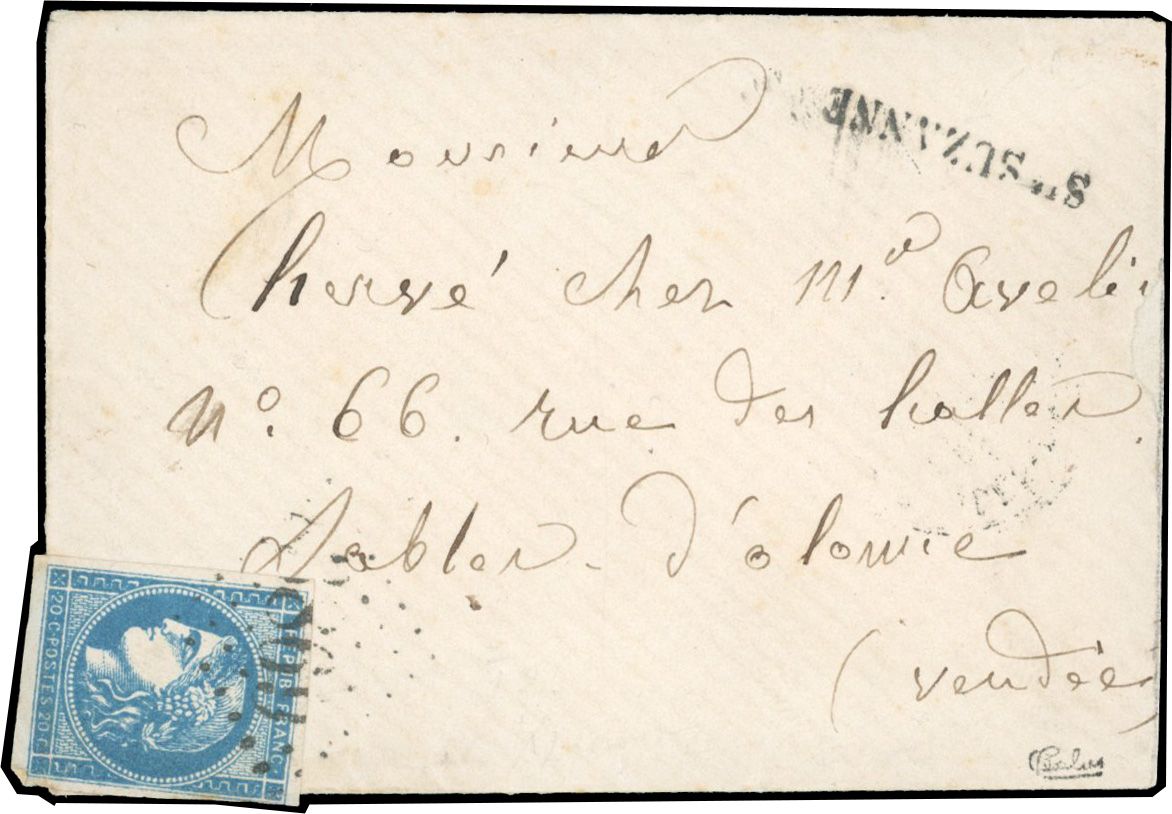 Monsieur
hervé chez Md. Aveli
No. 66. rue des halles
Sables - d'olonne
(vendée
STE SUZANNE
RÉPUB. FRANC.
20 C · POSTES 20 C